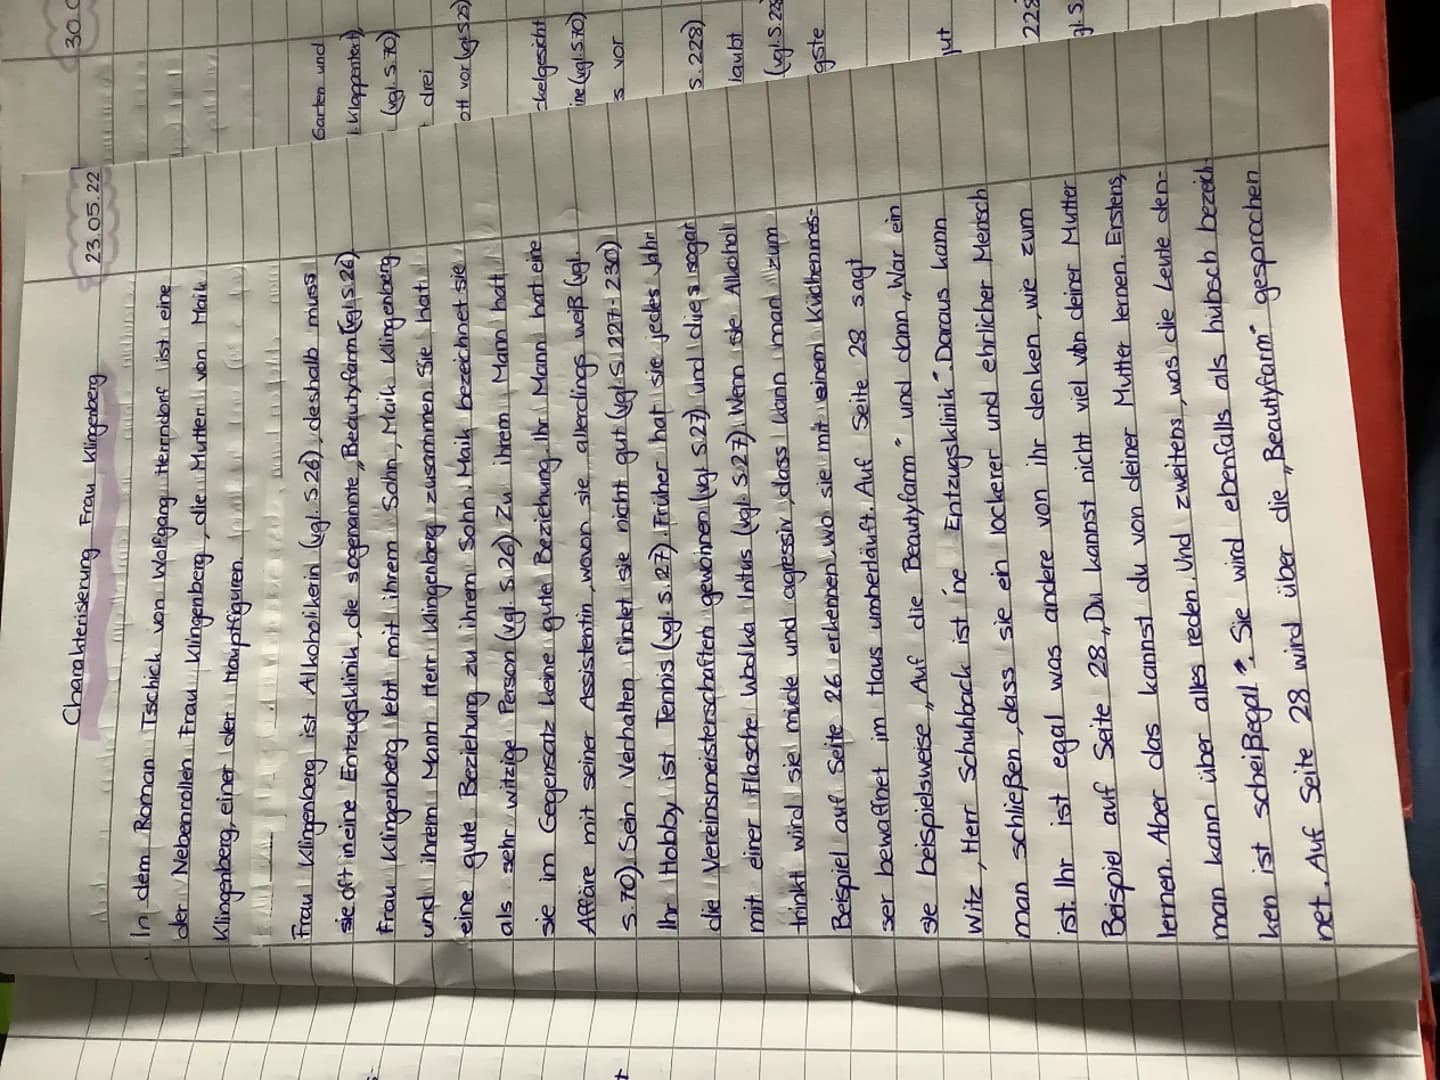 Charakterisierung Frau Klingenberg 23.05.22
In dem Roman Tschick von Wolfgang Herrndorf ist eine
der Nebenrollen Frau Klingenberg, die Mutter von Maik
Klingenberg, einer der Hauptfiguren.
Frau Klingenberg ist Alkoholikerin (vgl. S.26), deshalb muss
sie oft in eine Entzugsklinik, die sogenannte „Beautyfarm" (vgl. S.26)
Frau Klingenberg lebt mit ihrem Sohn, Maik Klingenberg
und ihrem Mann Herr Klingenberg zusammen. Sie hat
eine gute Beziehung zu ihrem Sohn. Maik bezeichnet sie
als sehr witzige Person (vgl. S.26) Zu ihrem Mann hat
sie im Gegensatz keine gute Beziehung. Ihr Mann hat eine
Affäre mit seiner Assistentin, wovon sie allerdings weiß (vgl.
S.70) Sein Verhalten findet sie nicht gut (vgl. S.227-230)
Ihr Hobby ist Tennis (vgl. S.27). Früher hat sie jedes Jahr
die Vereinsmeisterschaften gewonnen (vgl. S.27) und dies sogar
mit einer Flasche Wodka Intus (vgl. S.27). Wenn sie Alkohol
trinkt wird sie müde und agressiv, dass kann man zum
Beispiel auf Seite 26 erkennen, wo sie mit einem Küchenmes-
ser bewaffnet im Haus umherläuft. Auf Seite 28 sagt
sie beispielsweise „Auf die Beautyfarm" und dann „War ein
Witz, Herr Schuhback ist 'ne Entzugsklinik". Daraus kann
man schließen, dass sie ein lockerer und ehrlicher Mensch
ist. Ihr ist egal was andere von ihr denken, wie zum
Beispiel auf Seite 28 „Du kannst nicht viel von deiner Mutter
lernen. Aber das kannst du von deiner Mutter lernen. Erstens,
man kann über alles reden. Und zweitens, was die Leute den-
ken ist scheißegal". Sie wird ebenfalls als hübsch bezeich-
net. Auf Seite 28 wird über die „Beautyfarm" gesprochen
30.0
Garten und
Klappentext)
(vgl. S.70)
drei
ott vor (vgl. S25)
ckelgesicht
ine (vgl. S70)
s vor
S.228)
laubt
(vgl. S.22
gste
gut
225
gl. S